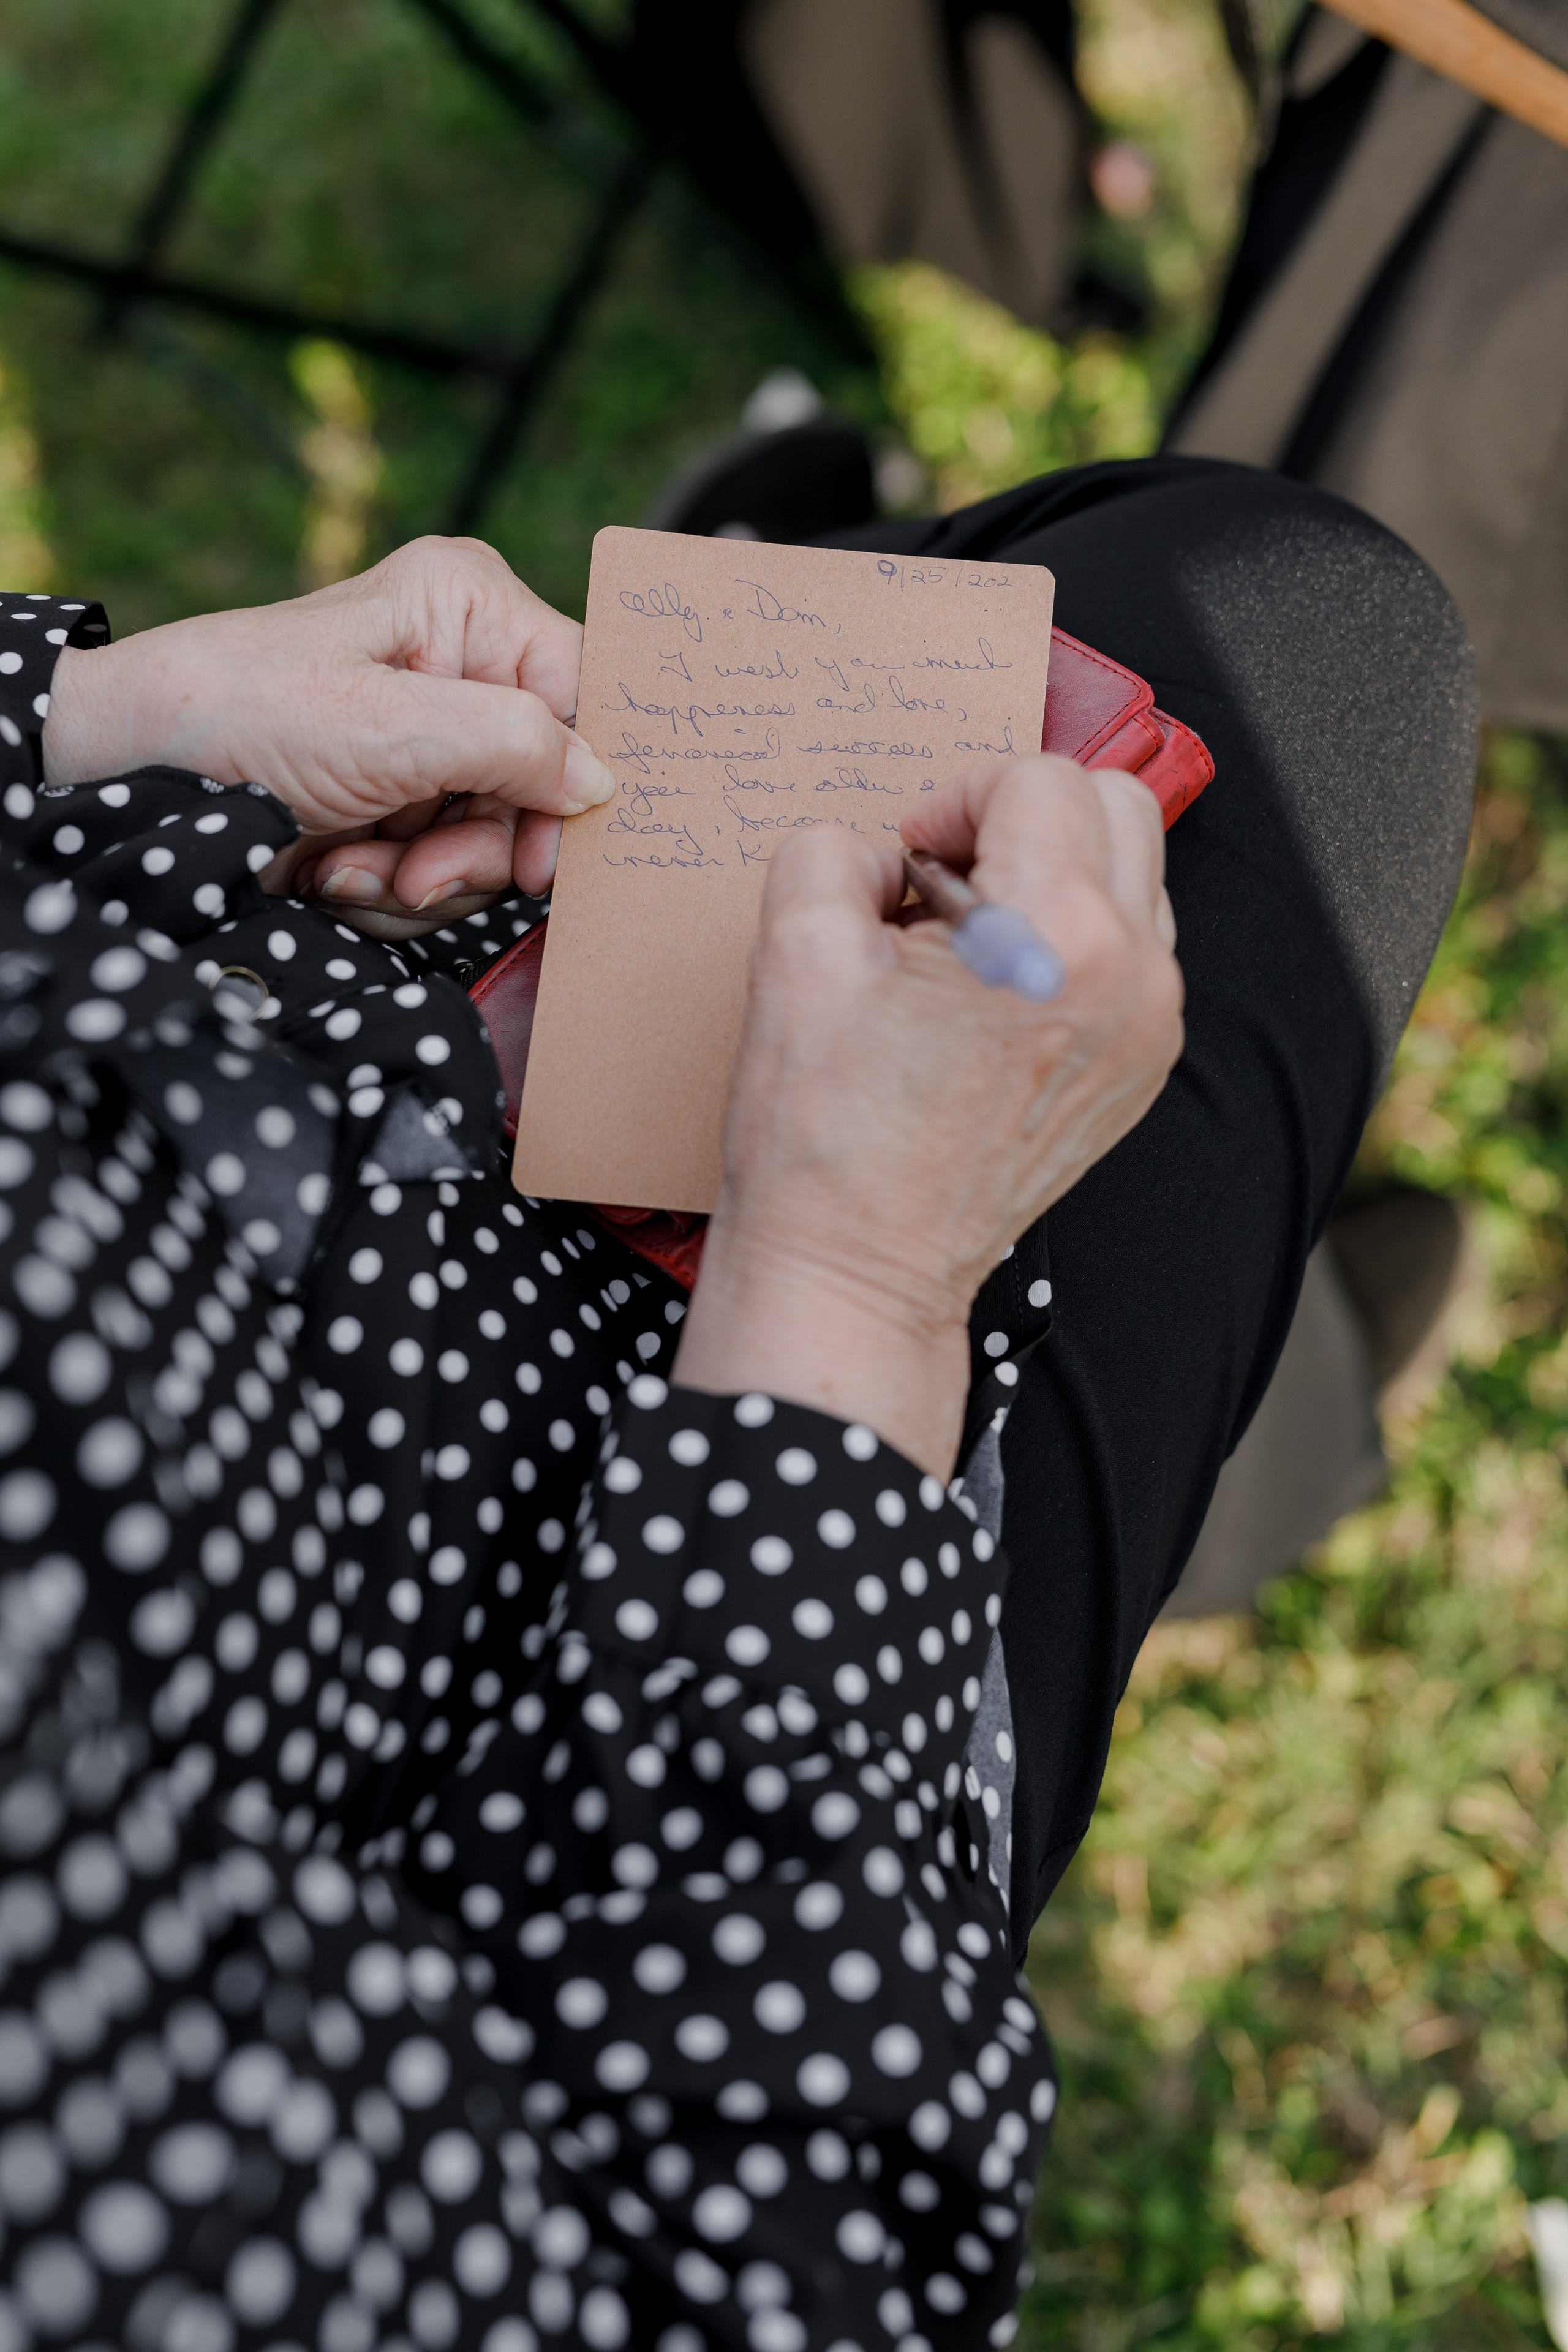 9/25/202
Ally & Dom,
I wish you much
happiness and love,
financial success and
love
day, because
never K